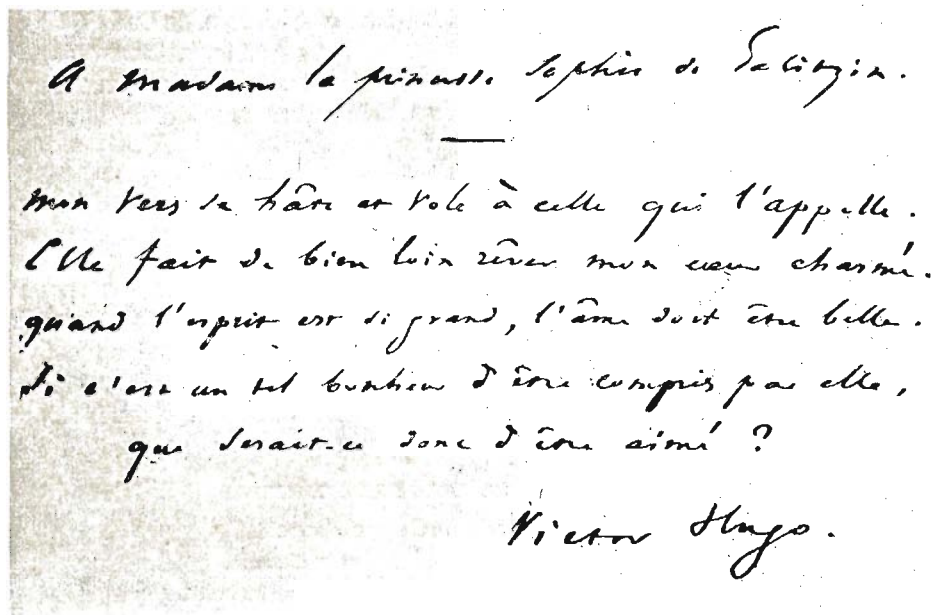 A madame la princesse Sophie de Galitzin.
mon vers se hâte et vole à celle qui l'appelle.
Elle fait de bien loin rêver mon cœur charmé.
quand l'esprit est si grand, l'âme doit être belle.
Si c'est un tel bonheur d'être compris par elle,
que serait-ce donc d'être aimé ?
Victor Hugo.